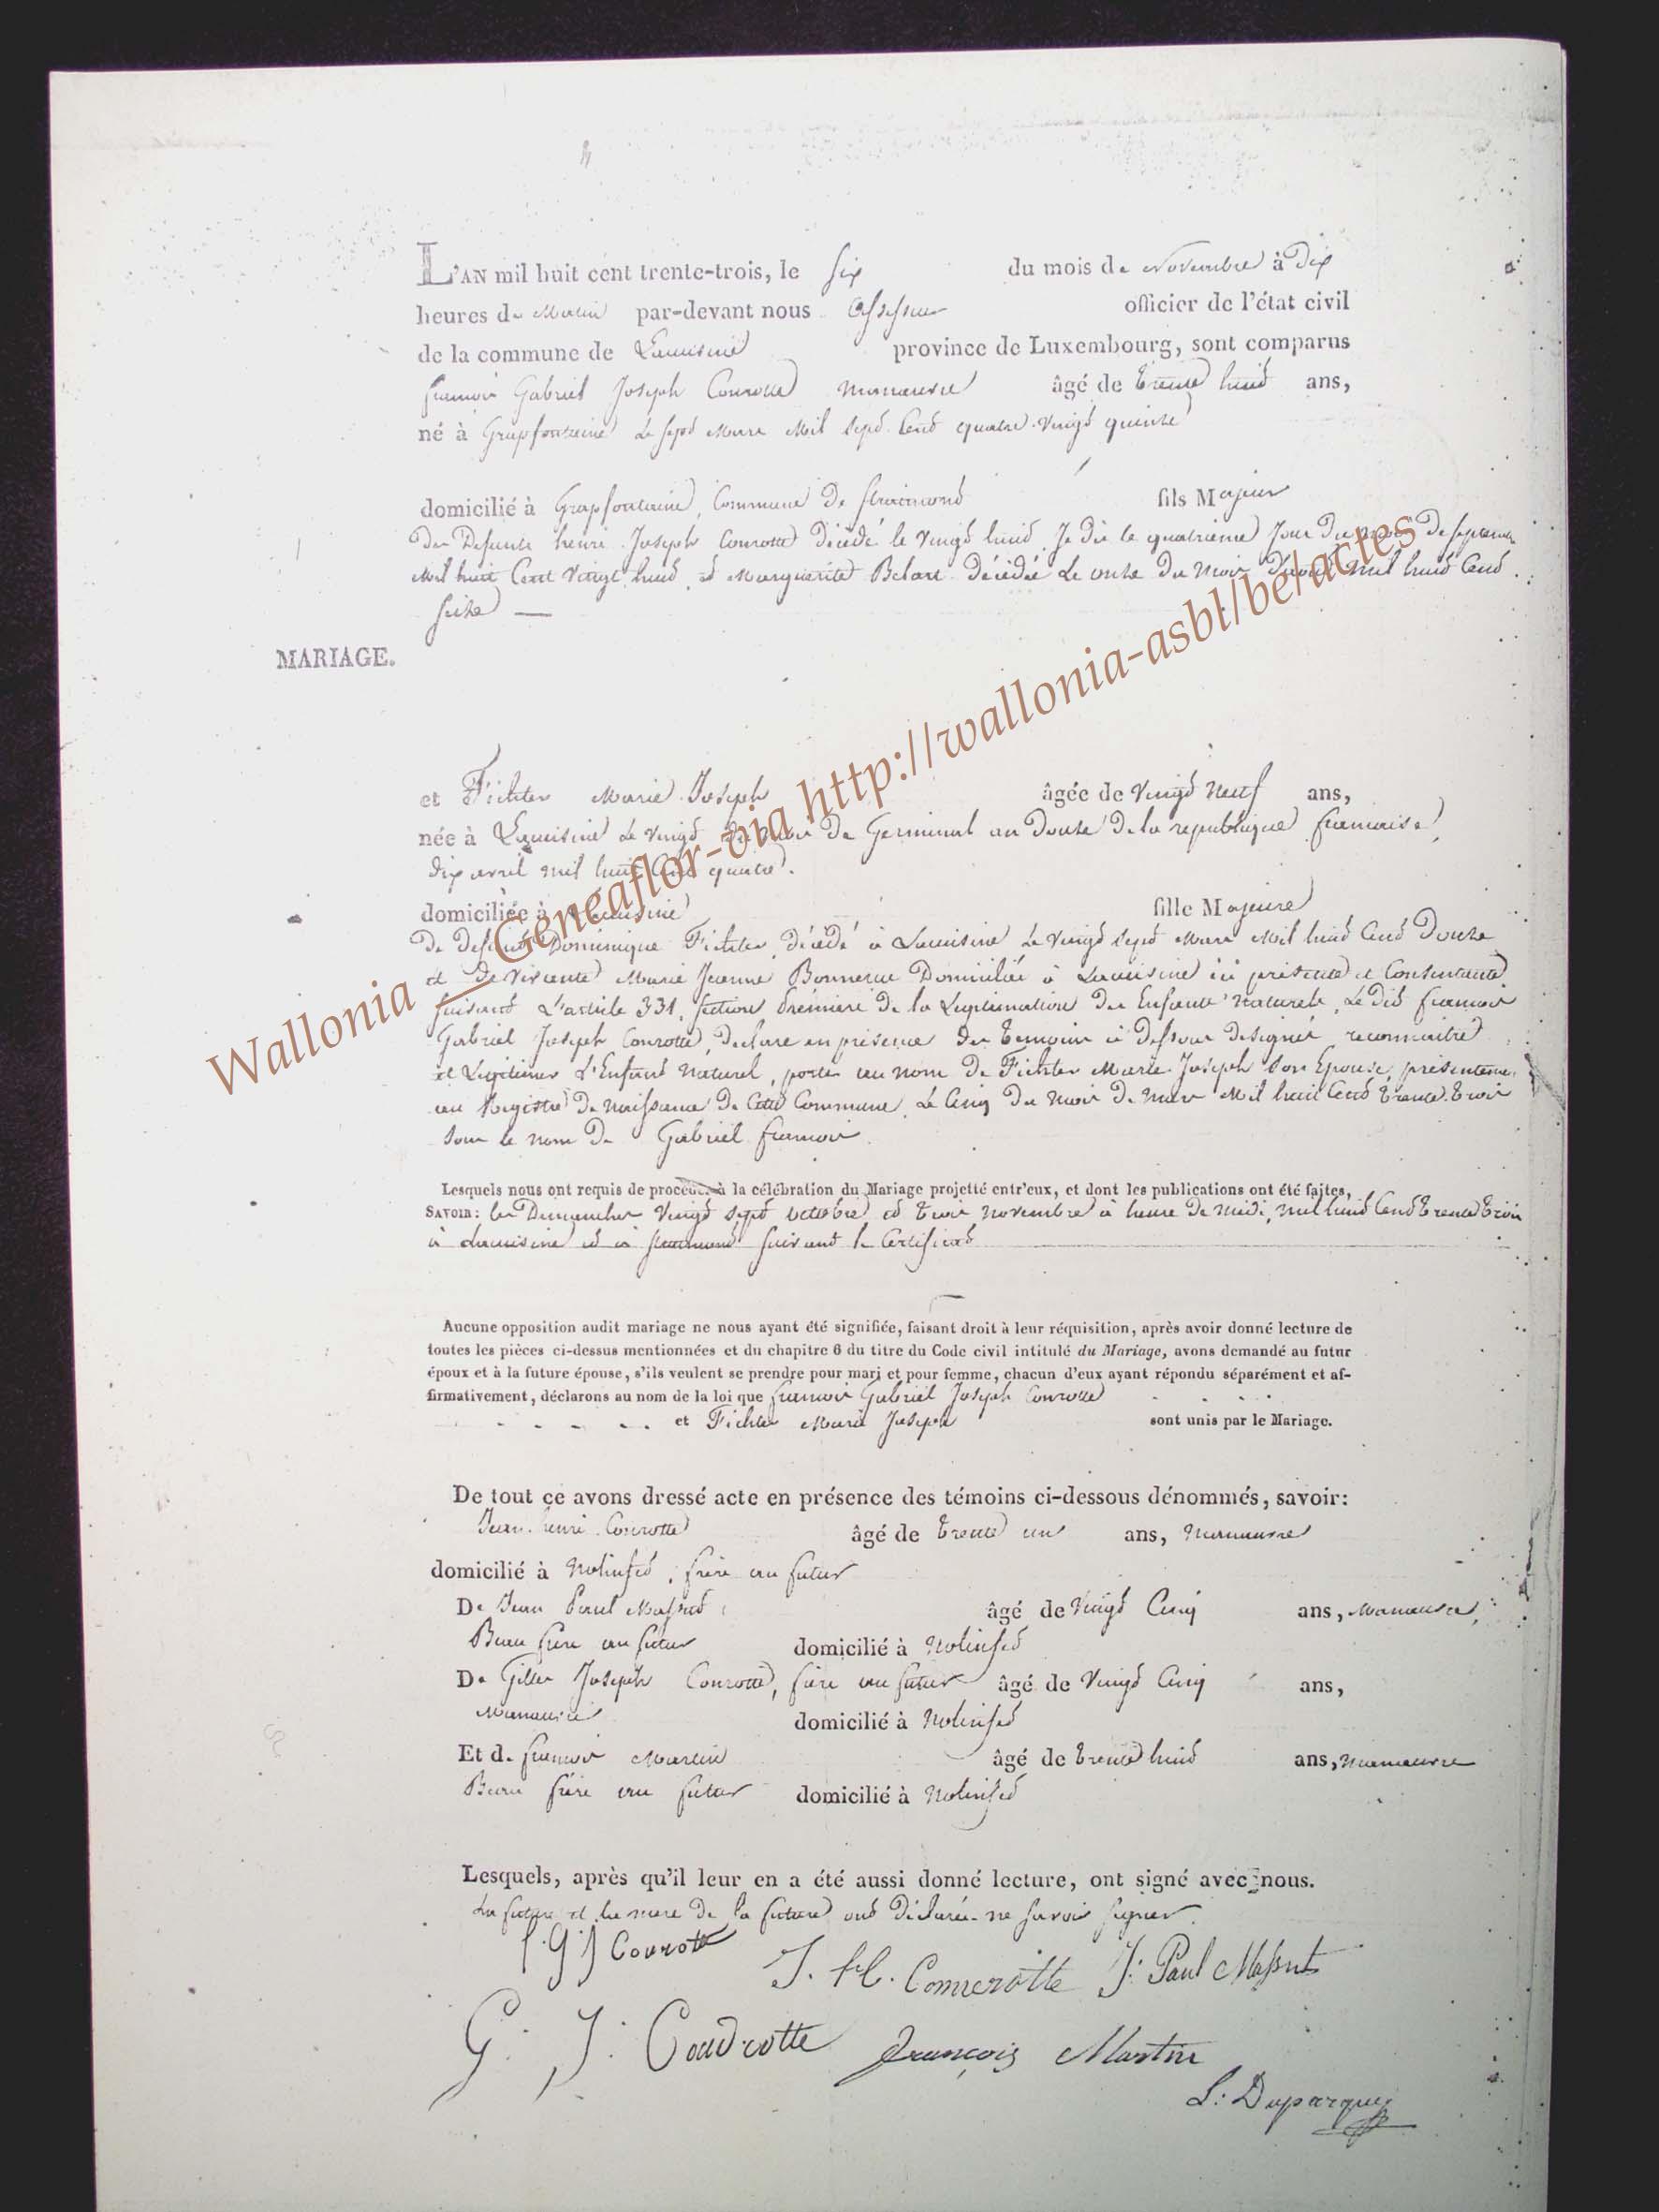 L'AN mil huit cent trente-trois, le six du mois de Novembre à dix
heures du Matin par-devant nous assesseur officier de l'état civil
de la commune de Lacuisine province de Luxembourg, sont comparus
francois Gabriel Joseph Conrotte Manœuvre âgé de trente huit ans,
né à Grapfontaine le sept Mars Mil Sept Cent quatre Vingt quinze
domicilié à Grapfontaine, Commune de Straimont fils Majeur
Des Defunts henri Joseph Conrotte décédé le Vingt huit, Je dis le quatrieme Jour du mois de Septembre
Mil huit Cent Vingt huit, et Marguerite Decédée Le onze Du Mois D'aout Mil huit Cent
seize
MARIAGE.
et Fichter Marie Joseph âgée de Vingt Neuf ans,
née à Lacuisine Le Vingt Du Mois De Germinal an Douze De la republique francaise,
dix avril mil huit Cent quatre.
domiciliée à Lacuisine fille Majeure
De defunt Dominique Fichter, décédé à Lacuisine Le Vingt Sept Mars Mil huit Cent Douze
et De Vivante Marie Jeanne Domiciliée à Lacuisine ici présente et Consentante
suivant L'article 331, Section Premiere De la Legitimation Des Enfants Naturels, Le Dit francois
Gabriel Joseph Conrotte, Declare en présence Des temoins ci Dessous Designés reconnaitre
et Légitimer L'Enfant Naturel, porter au nom De Fichter Marie Joseph Son Epouse,
au Registre De Naissance De Cette Commune, Le Cinq Du Mois De Mars Mil huit Cent Trente Trois
Sous le nom De Gabriel francois.
Lesquels nous ont requis de procéder à la célébration du Mariage projetté entr'eux, et dont les publications ont été faites,
SAVOIR: les Dimanches Vingt Sept octobre et trois Novembre à heure De Midi, Mil huit Cent Trente Trois
à Lacuisine et à Straimont suivant le Certificat
Aucune opposition audit mariage ne nous ayant été signifiée, faisant droit à leur réquisition, après avoir donné lecture de
toutes les pièces ci-dessus mentionnées et du chapitre 6 du titre du Code civil intitulé du Mariage, avons demandé au futur
époux et à la future épouse, s'ils veulent se prendre pour mari et pour femme, chacun d'eux ayant répondu séparément et af-
firmativement, déclarons au nom de la loi que francois Gabriel Joseph Conrotte
et Fichter Marie Joseph sont unis par le Mariage.
De tout ce avons dressé acte en présence des témoins ci-dessous dénommés, savoir:
Jean henri Conrotte âgé de trente un ans, Manœuvre
domicilié à Nolinfed, frère au futur
De Jean Paul Massut âgé de Vingt Cinq ans, Manœuvre,
Beau frère au futur domicilié à Nolinfed
De Gilles Joseph Conrotte, frère au futur âgé de Vingt Cinq ans,
Manœuvre domicilié à Nolinfed
Et de francois Martin âgé de trente huit ans, Manœuvre
Beau frère au futur domicilié à Nolinfed
Lesquels, après qu'il leur en a été aussi donné lecture, ont signé avec nous.
La future et la mere De la future ont Déclarées ne savoir signer.
f. G. J Conrotte J. H. Conrotte J: Paul Massut
G: J: Conrotte François Martin
L: Duparque
Wallonia - Généaflor-via http://wallonia-asbl/be/actes